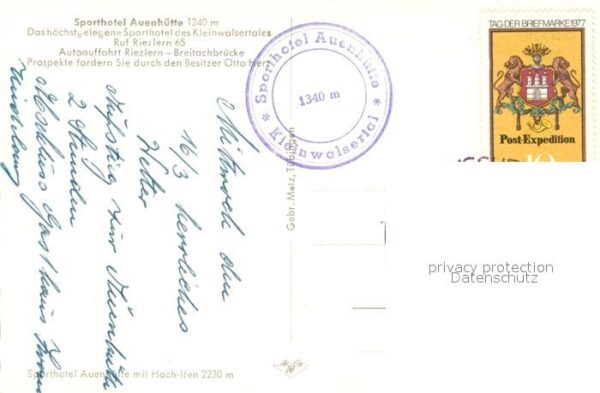 Sporthotel Auenhütte 1340 m
Das höchstgelegene Sporthotel des Kleinwalsertales
Ruf Riezlern 65
Autoauffahrt Riezlern – Breitachbrücke
Prospekte fordern Sie durch den Besitzer Otto
* Sporthotel Auenhütte *
1340 m
Kleinwalsertal
TAG DER BRIEFMARKE 1977
Post-Expedition
Mittwoch den
16/3 herrliches
Wetter
Aufstieg zur Auenhütte
2 Stunden
Gasthaus
Gebr. Metz, Tübingen
privacy protection
Datenschutz
Sporthotel Auenhütte mit Hoch-Ifen 2230 m